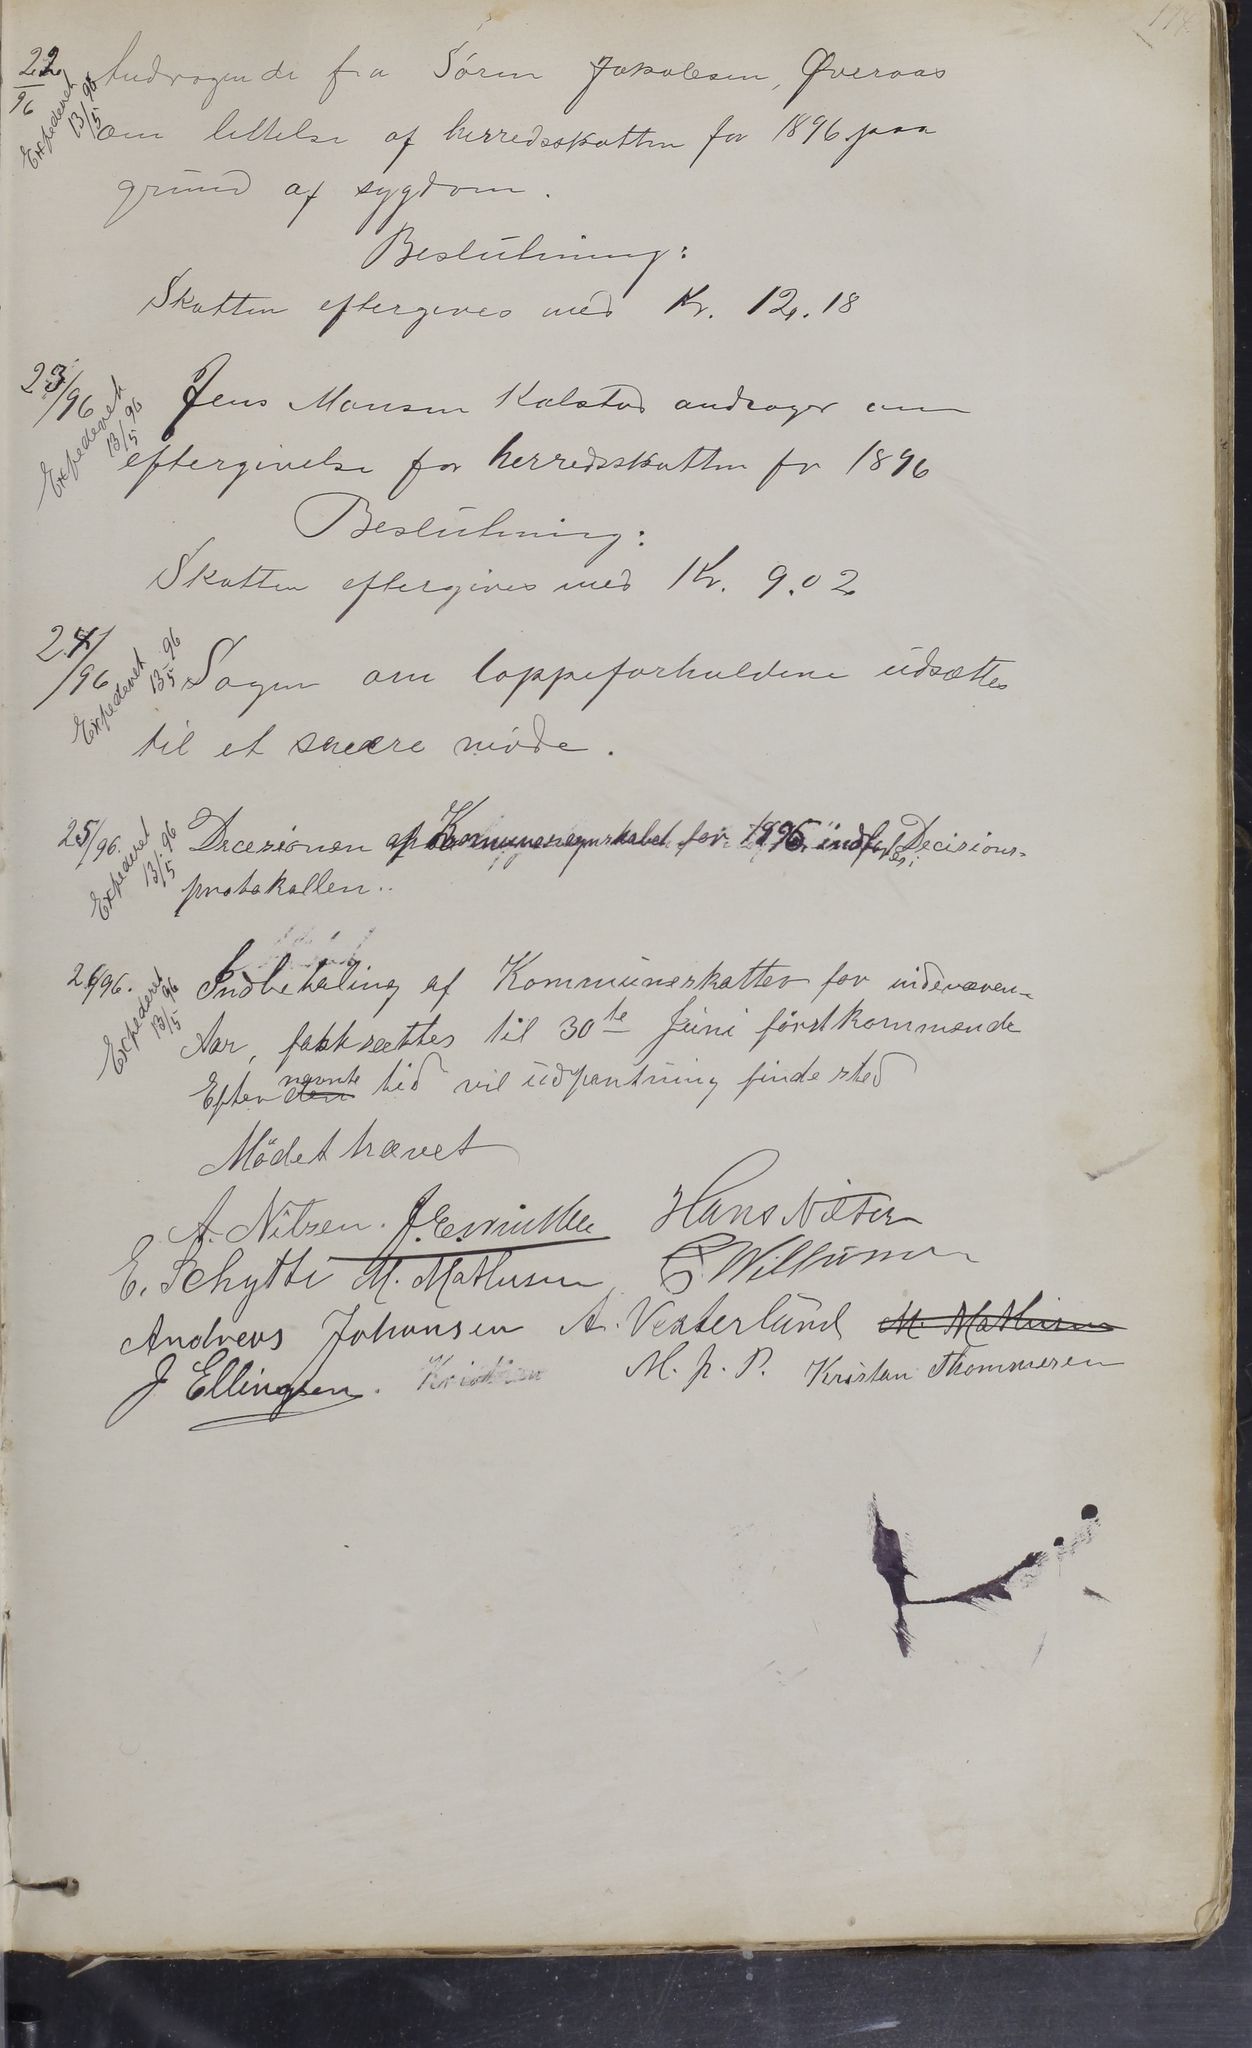 174
22/96 Andragende fra Sören Jakobsen, Øveraas
Expederet 13/5 96
om lettelse af herredsskatten for 1896 paa
grund af sygdom.
Beslutning:
Skatten eftergives med Kr. 12.18
23/96 Jens Monsen Kalstad andrager om
Expederet 13/5 96
eftergivelse for herredsskatten for 1896
Beslutning:
Skatten eftergives med Kr. 9.02
24/96 Sagen om loppeforholdene udsættes
Expederet 13/5 96
til et senere möde.
25/96. Decesionen af Kommuneregnskabet for 1896, indföres i Decisions-
Expederet 13/5 96
protokollen..
26/96. Indbetaling af Kommuneskatter for indeværen-
Expederet 13/5 96
Aar, fastsættes til 30te Juni förstkommende
nævnte
Efter den tid vil udpantning finde sted
Mödet hævet
A. Nilsen. Hans Nilsen
E. Schytte M. Mathisen Willumsen
Andreas Johansen A. Vesterlund M Mathisen
J Ellingsen. Kristian M. p. P. Kristan Thommesen